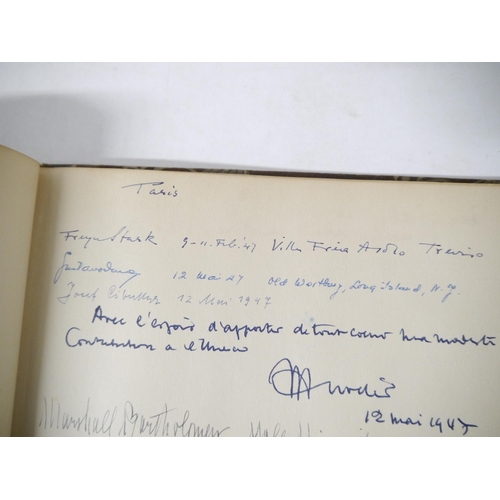 Paris
Freya Stark 9-11. Feb. 47 Villa Freia Asolo Treviso
12 Mai 47 Old Westbury, Long Island, N.Y.
Josef 12 Mai 1947
Avec l'espoir d'apporter de tout coeur ma modeste
a l'Unesco
12 mai 1947
Marshall Bartholomew Yale